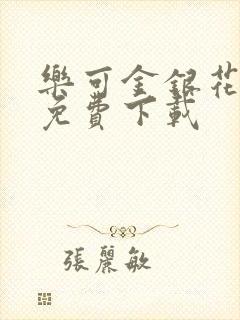 樂可金銀花
免費下載
張麗敏